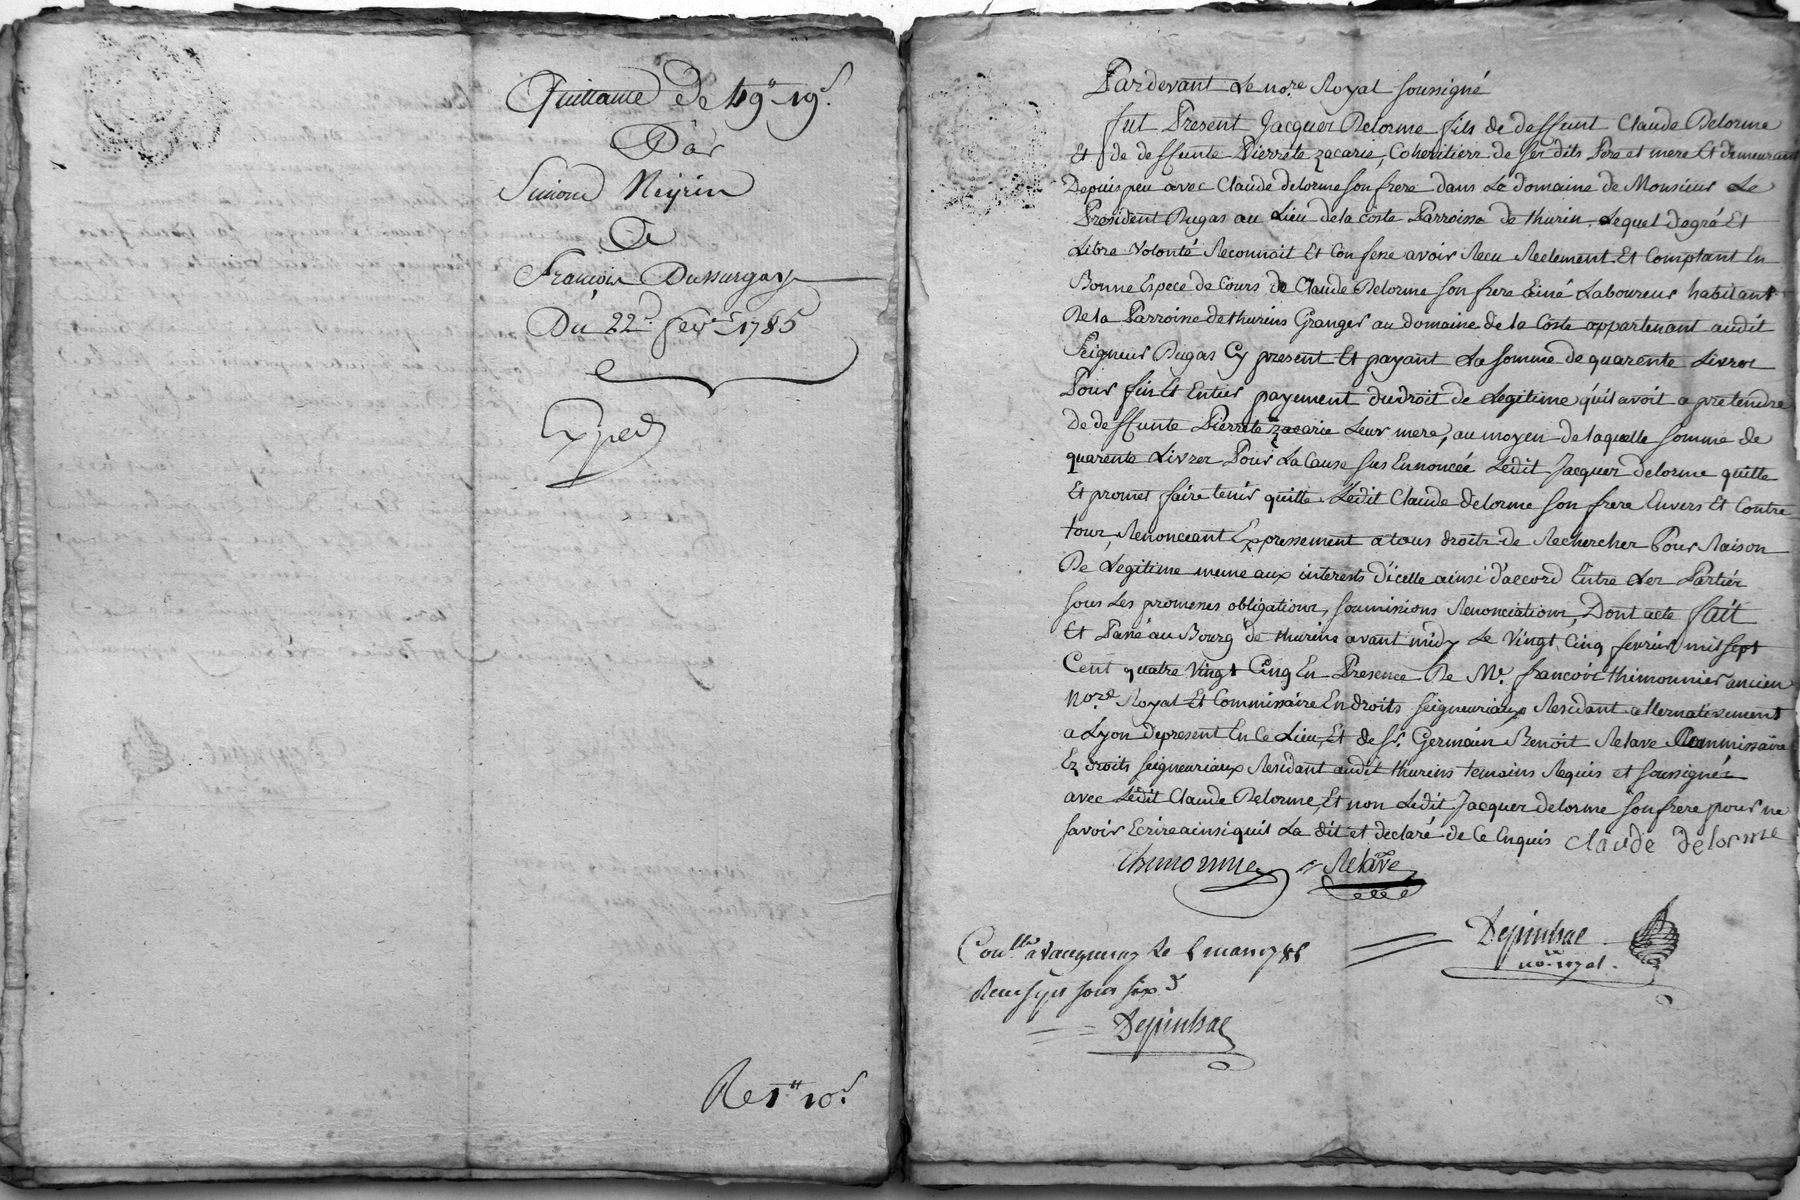 Quittance De 49# 19s
Par
Simond Neyrin
A
François Dussurgey
Du 22e fevr 1785
Exped
Re 1# 10s
Pardevant Le nore Royal soussigné
fut Present Jacques Delorme fils de deffunt Claude Delorme
Et de deffunte Pierrete zacarie, Coheritiers de ses dits Pere et mere Et demeurant
Depuis peu avec Claude delorme son frere dans Le domaine de Monsieur Le
President Dugas au Lieu de la Coste Parroisse de thurin. Lequel de gré Et
Libre Volonté Reconnoit Et Confesse avoir Recu Reelement Et Comptant En
Bonne Espece de Cours de Claude Delorme son frere Einé Laboureur habitant
De la Parroisse de thurins Granger au domaine de la Coste appartenant audit
Seigneur Dugas Cy present Et payant La somme de quarente Livres
Pour fin Et Entier payement du droit de Legitime qu'il avoit a pretendre
de deffunte Pierrete zacarie Leur mere, au moyen de laquelle somme de
quarente Livres Pour La Cause sus Ennoncée Ledit Jacques delorme quitte
Et promet faire tenir quitte Ledit Claude delorme son frere Envers Et Contre
tous, Renonceant Expressement a tous droits de Rechercher Pour Raison
De Legitime meme aux interests d'icelle ainsi d'accord Entre Les Parties
sous Les promesses obligations, soumissions Renonciations, Dont acte fait
Et Passé au Bourg de thurins avant midy Le Vingt Cinq fevrier mil sept
Cent quatre Vingt Cinq En Presence De Me. francois thimonnier ancien
nore Royal Et Commissaire En droits seigneuriaux Residant alternativement
a Lyon depresent En Ce Lieu, Et de Sr. Germain Benoit Relave Commissaire
Ez droits seigneuriaux Residant audit thurins temoins Requis et soussignés
avec Ledit Claude Delorme, Et non Ledit Jacques delorme son frere pour ne
savoir Ecrire ainsi quil La dit et declaré de Ce Enquis claude delorme
thimonnier Relave
Depinhac
nore royal
Conllé a Vaugneray Le mars 1785
Recu sept sous six d
Depinhac